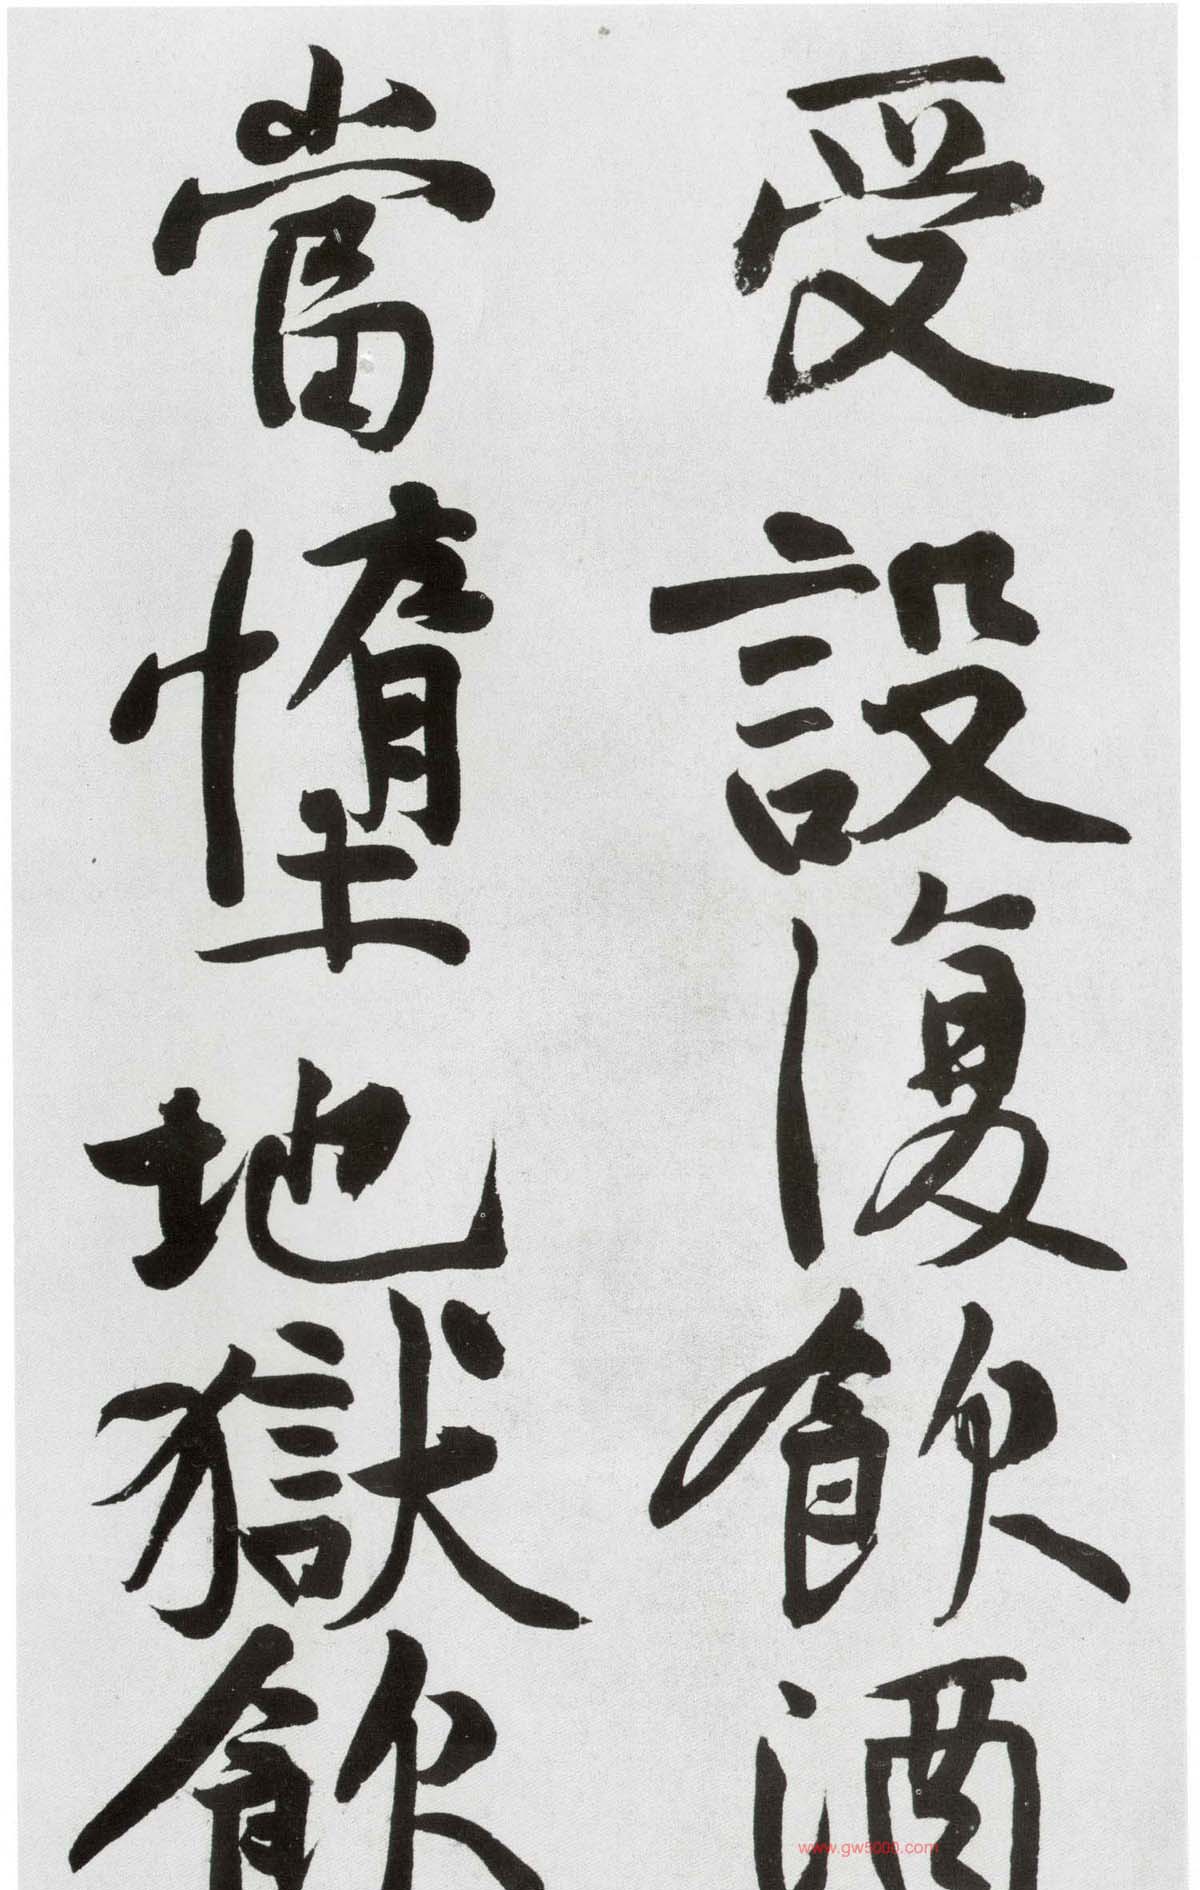 受設復飲酒
當墮地獄飲
www.gw5000.com